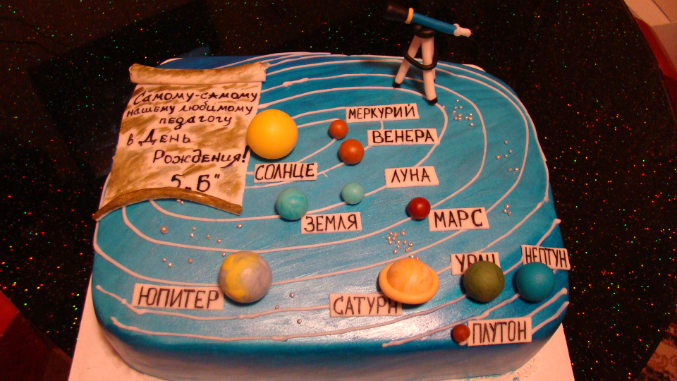 Самому-самому
нашему любимому
педагогу
в День
Рождения!
5 „Б"
МЕРКУРИЙ
ВЕНЕРА
СОЛНЦЕ
ЛУНА
ЗЕМЛЯ
МАРС
УРАН
НЕПТУН
ЮПИТЕР
САТУРН
ПЛУТОН